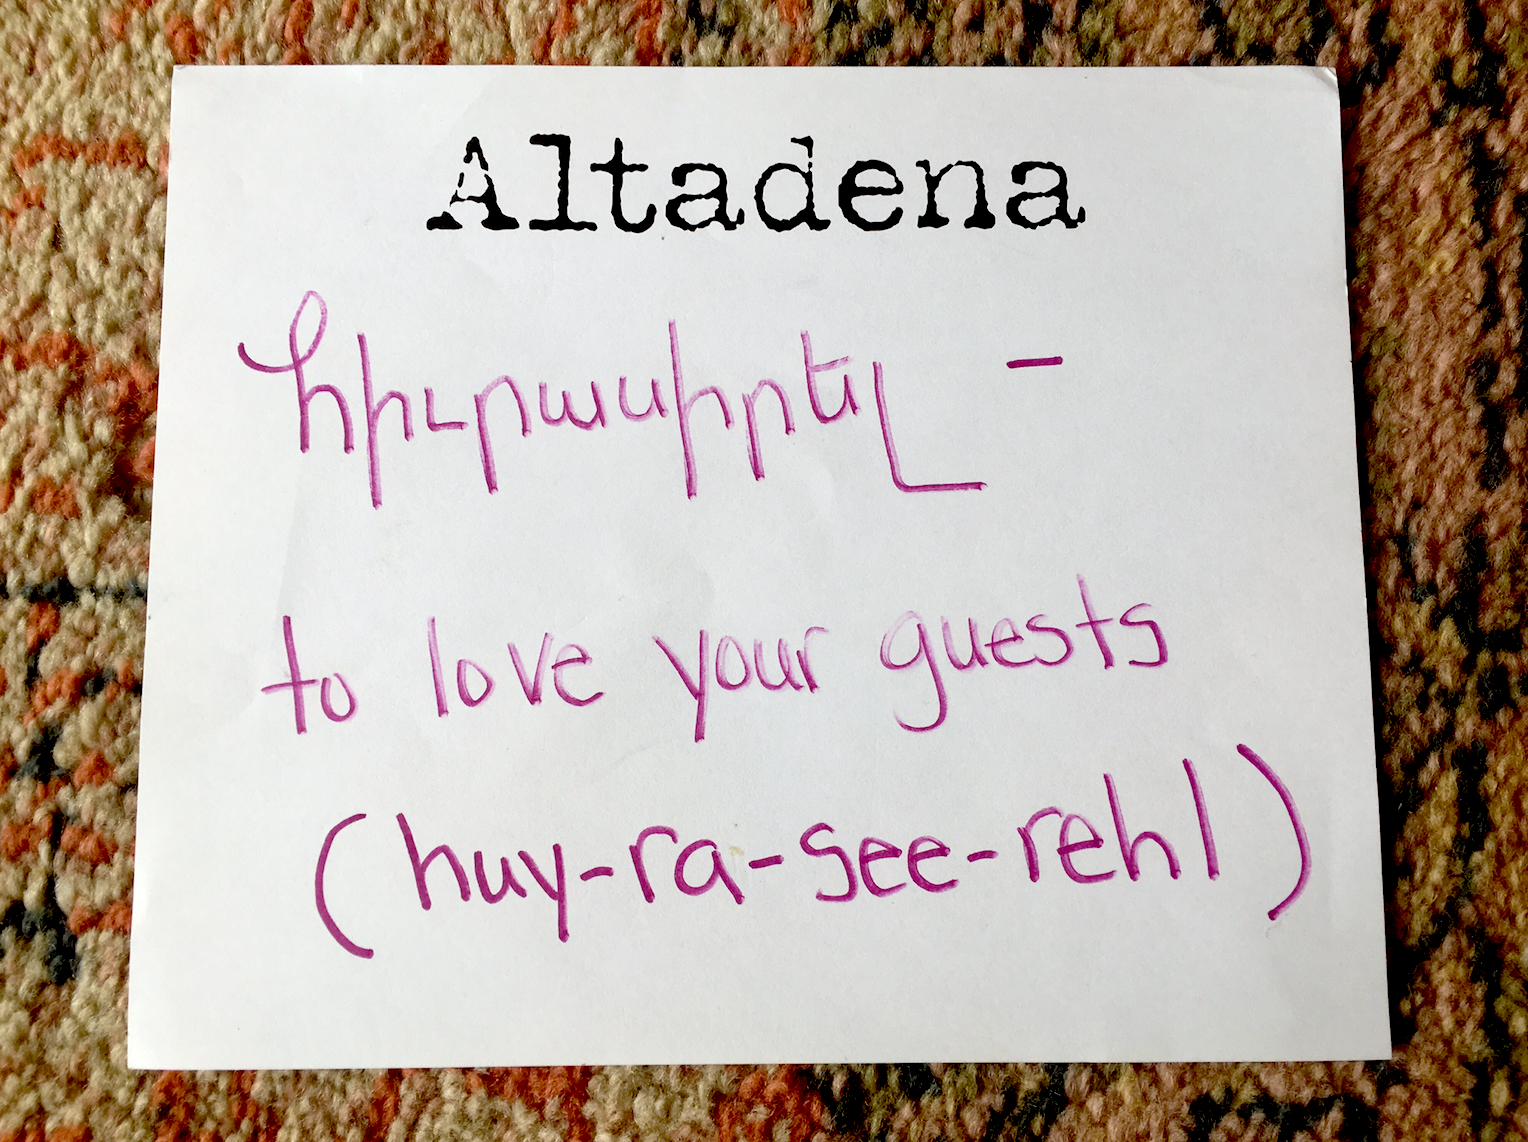 Altadena
հիւրասիրել –
to love your guests
(huy-ra-see-rehl)